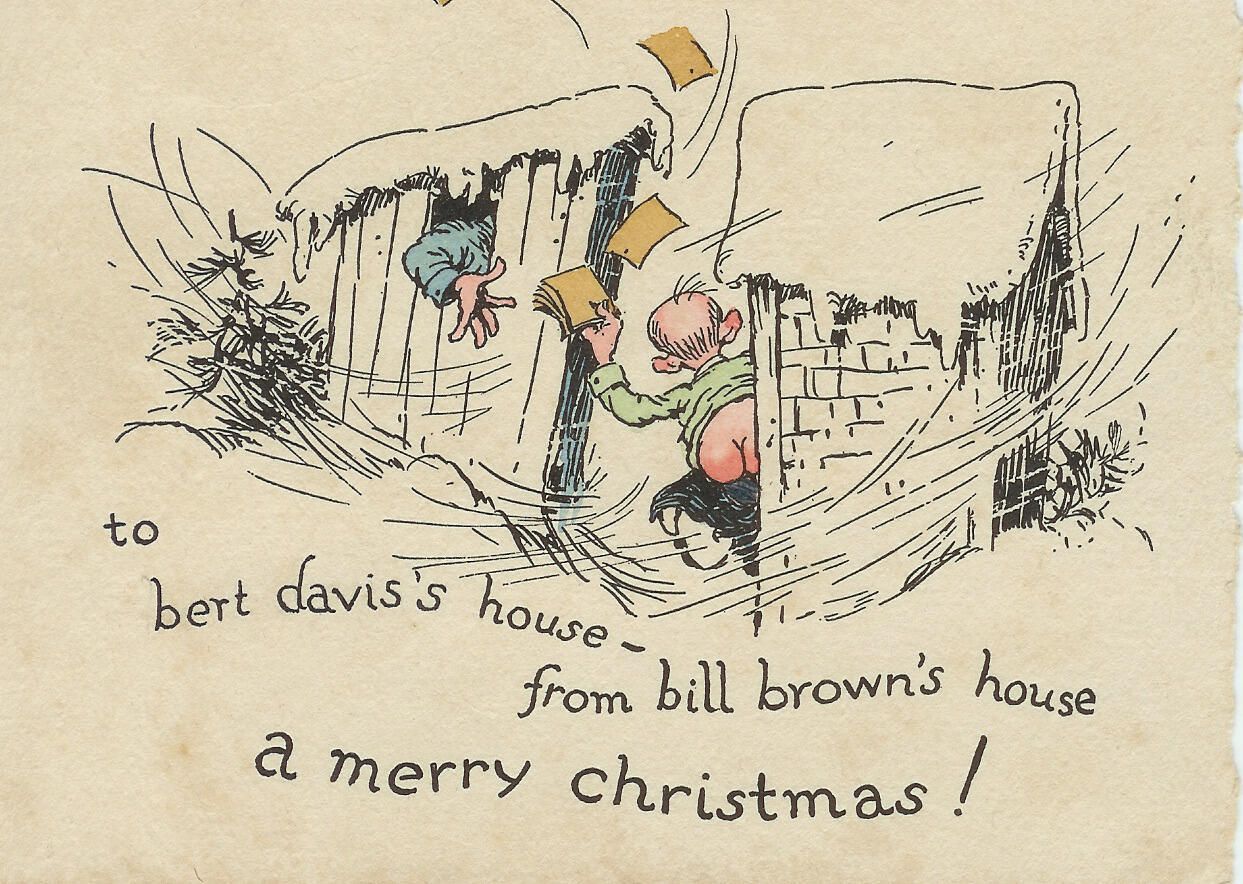 to
bert davis's house -
from bill brown's house
a merry christmas!